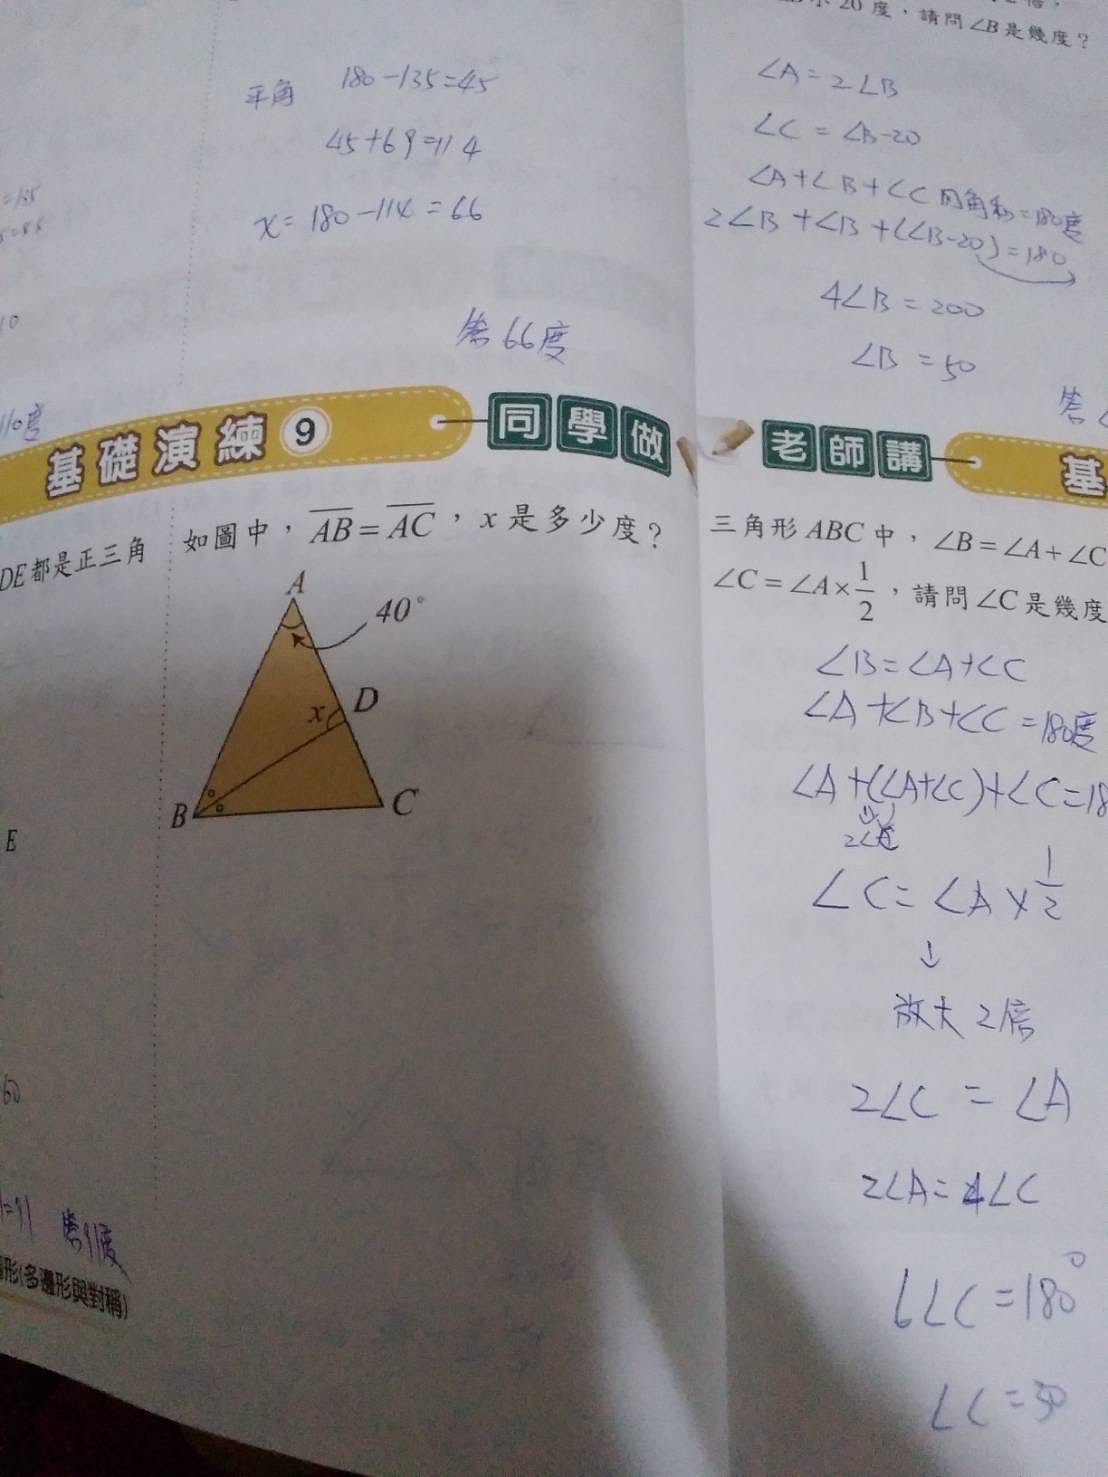 平角 180-135=45
45+69=114
x=180-114=66
答66度
10
110度
基礎演練 9 同學做
DE都是正三角
如圖中，AB=AC，x是多少度？
A
40°
D
x
B
C
E
60
答91度
形(多邊形與對稱)
20度，請問∠B是幾度？
∠A=2∠B
∠C=∠B-20
∠A+∠B+∠C 內角和=180度
2∠B+∠B+(∠B-20)=180
4∠B=200
∠B=50
答
老師講 基
三角形ABC中，∠B=∠A+∠C
∠C=∠A×1/2，請問∠C是幾度
∠B=∠A+∠C
∠A+∠B+∠C=180度
∠A+(∠A+∠C)+∠C=18
∠C=∠A×1/2
↓
放大2倍
2∠C=∠A
2∠A=4∠C
6∠C=180°
∠C=30